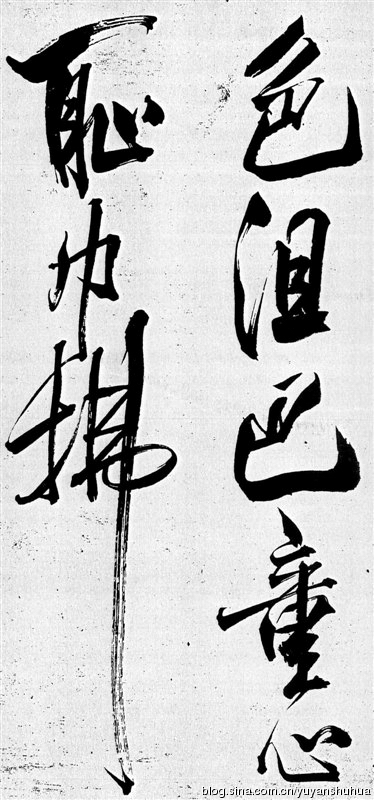 色沮巴童心
恥巾拂
blog.sina.com.cn/yuyanshuhua